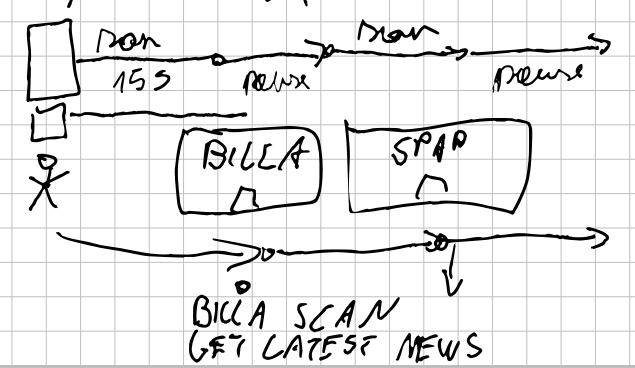 scan scan
15s pause pause
BILLA SPAR
BILLA SCAN
GET LATEST NEWS